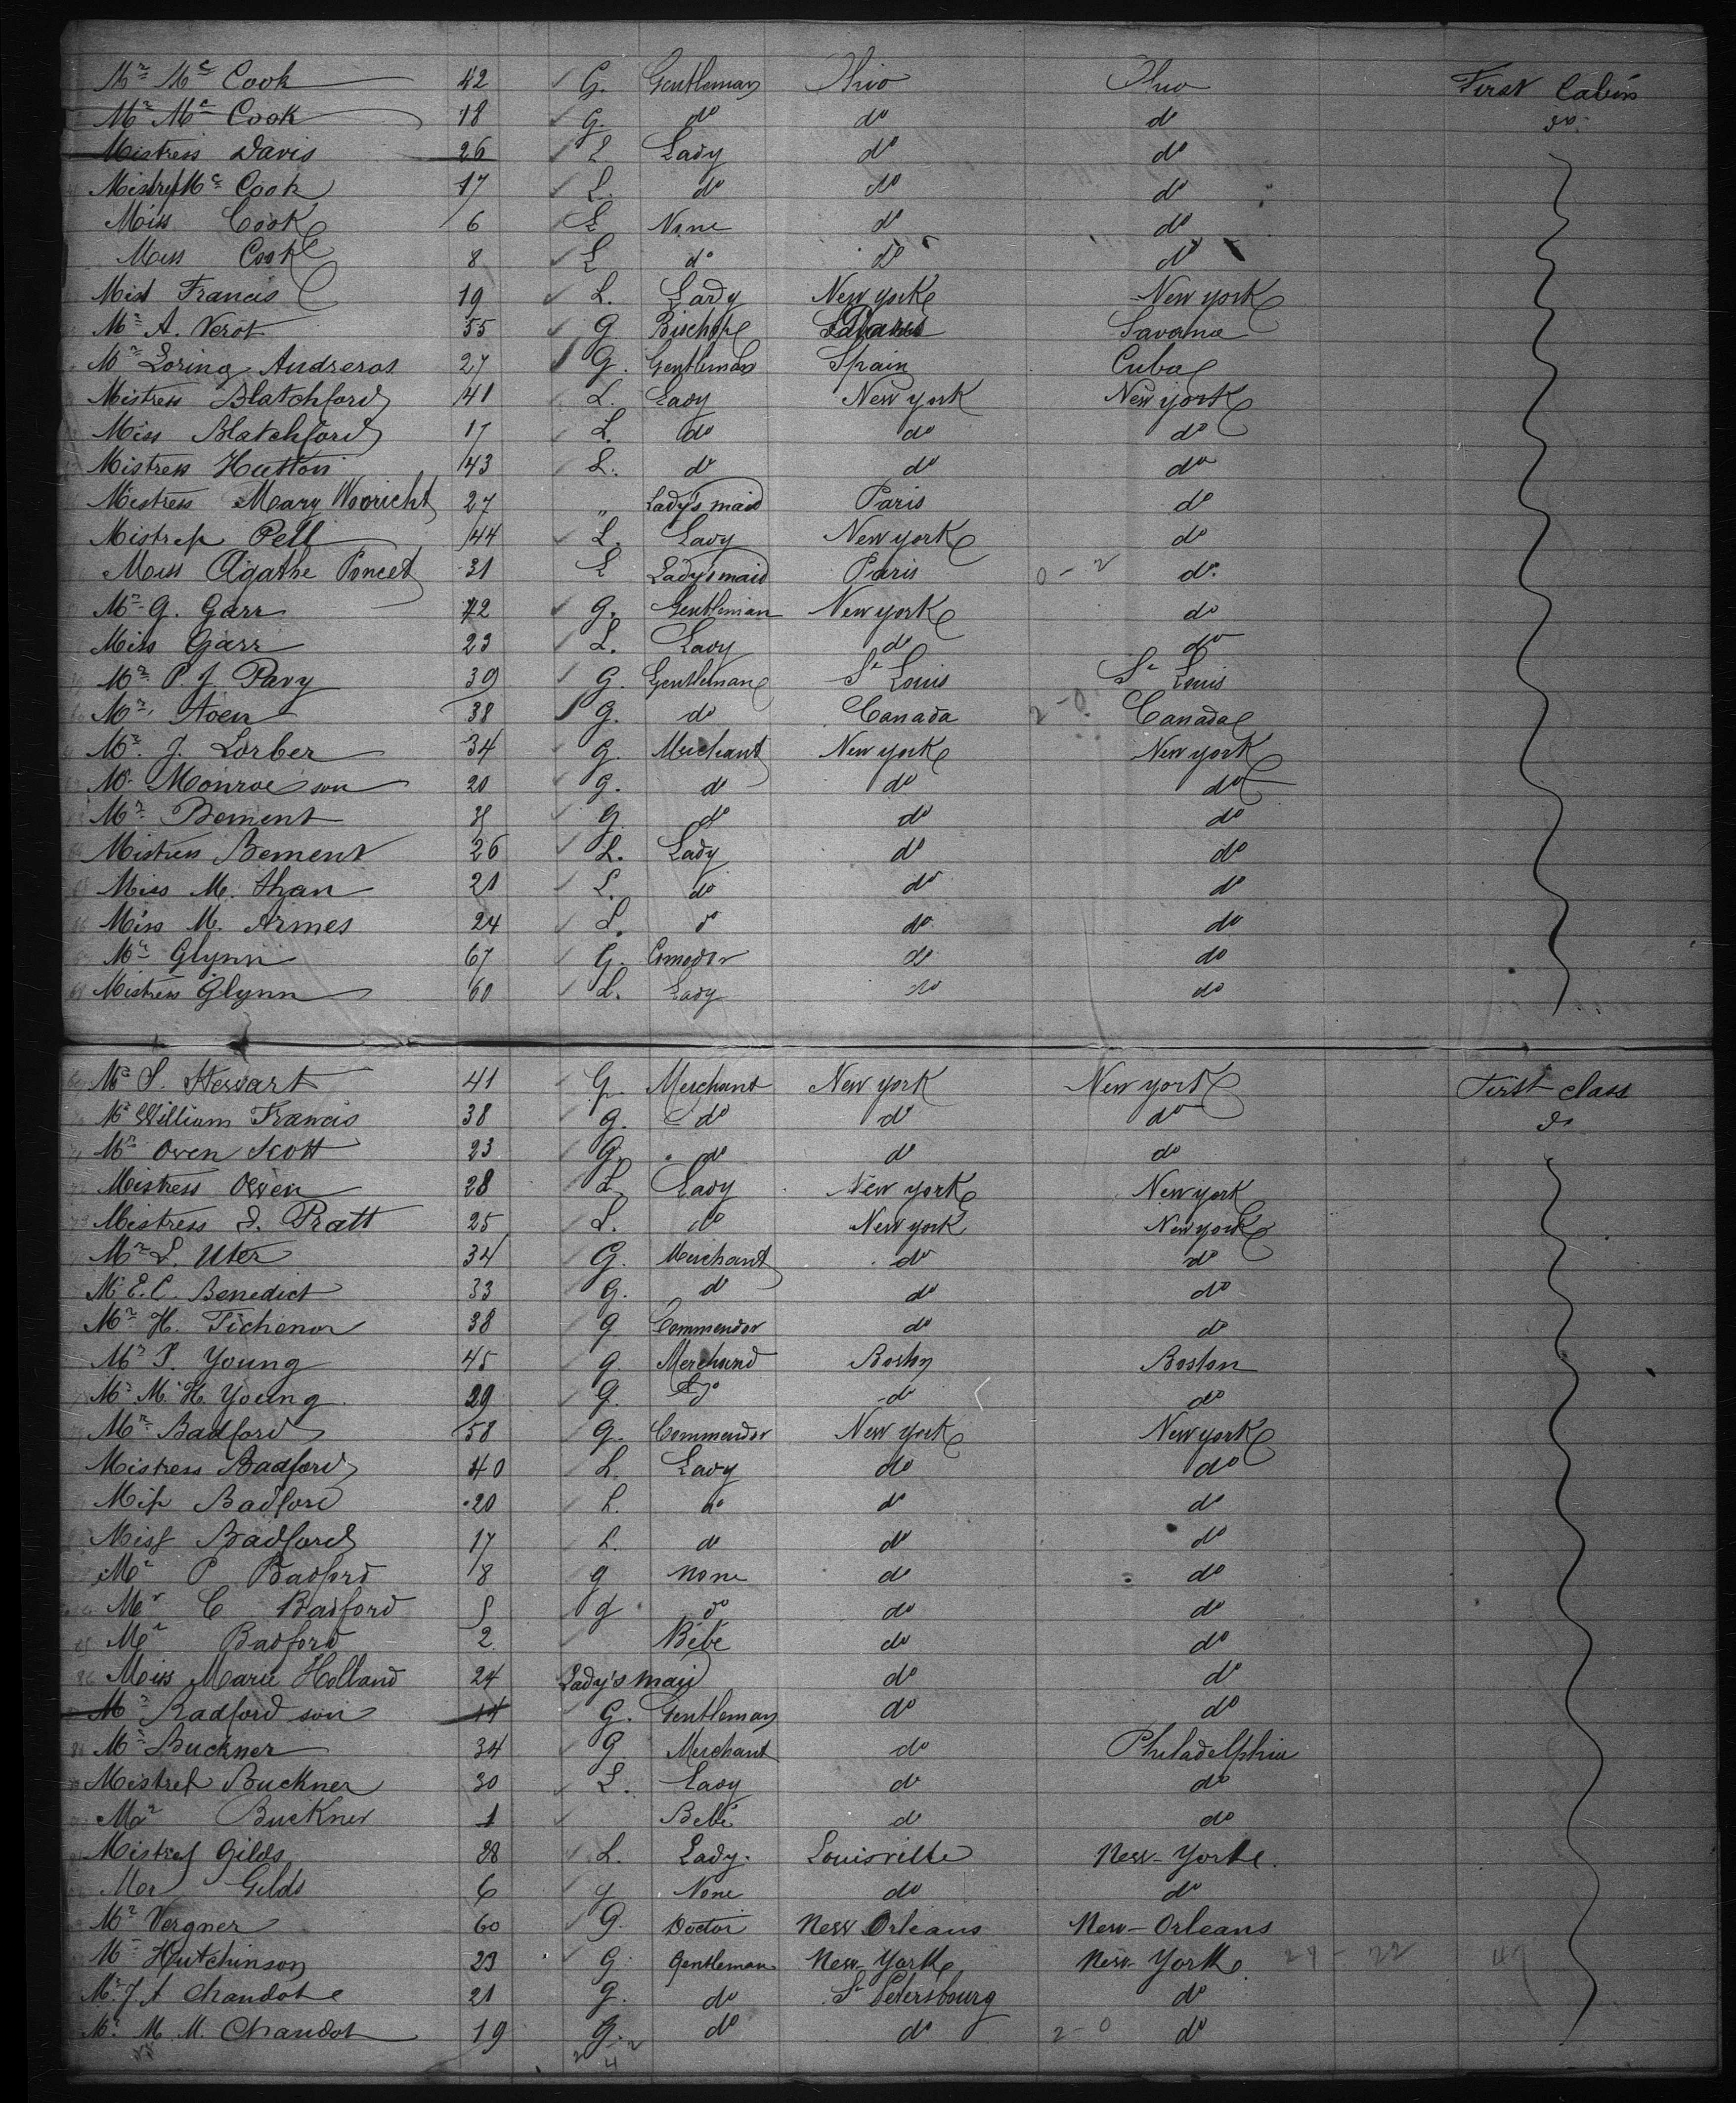 Mr Mc Cook 42 G. Gentleman Ohio Ohio First Cabin
Mr Mc Cook 18 G. do do do do
Mistress Davis 26 L Lady do do
Mistress Mc Cook 17 L. do do do
Miss Cook 6 L None do do
Miss Cook 8 L do do do
Miss Francis 19 L. Lady New york New york
Mr A. Verot 55 G Bischop Savana
Mr Loring Andreros 27 G. Gentleman Spain Cuba
Mistress Blatchford 41 L. Lady New york New york
Miss Blatchford 17 L. do do do
Mistress Hutton 43 L. do do do
Mistress Mary 27 " Lady's maid Paris do
Mistress Pell 44 L. Lady New york do
Miss Agathe Poncet 31 L Lady's maid Paris 0 - 2 do
Mr G. Garr 42 G. Gentleman New york do
Miss Garr 23 L. Lady do do
Mr P. J. Pavy 39 G. Gentleman St Louis St Louis
Mr 38 G. do Canada 2 - 0 Canada
Mr J. Lorber 34 G. Merchant New york New york
Mr Monroe son 20 G. do do do
Mr Bement G do do do
Mistress Bement 26 L. Lady do do
Miss M. than 21 L. do do do
Miss M. Armes 24 L. do do do
Mr Glynn 67 G. Comodor do do
Mistress Glynn 60 L. Lady do do
Mr S. Stewart 41 G. Merchant New york New york First class
Mr William Francis 38 G. do do do do
Mr Owen Scott 23 G. do do do
Mistress Owen 28 L Lady New york New york
Mistress J. Pratt 25 L. do New york New york
Mr L. Uter 34 G. Merchant do do
Mr E. C. Benedict 33 G. do do do
Mr H. Tichenor 38 G Commendor do do
Mr P. Young 45 G. Merchand Boston Boston
Mr M. H. Young 29 G. do do do
Mr Badford 58 G. Commendor New york New york
Mistress Badford 40 L. Lady do do
Miss Badford 20 L. do do do
Miss Badford 17 L. do do do
Mr P Badford 8 G none do do
Mr C Badford 5 G do do do
Mr Badford 2 Bébé do do
Miss Marie Holland 24 Lady's maid do do
Mr Radford son 14 G. Gentleman do do
Mr Buckner 34 G Merchant do Philadelphia
Mistress Buckner 30 L. Lady do do
Mr Buckner 1 Bébé do do
Mistress Gilds 28 L. Lady. Louisville New-York.
Mr Gilds 6 G None do do
Mr Vergner 60 G. Doctor New Orleans New-Orleans
Mr Hutchinson 23 G. Gentleman New-York New-York 29 - 22 49
Mr J. A Chandot 21 G. do St Petersbourg do
Mr M. M. Chandot 19 G. do do 2 - 0 do